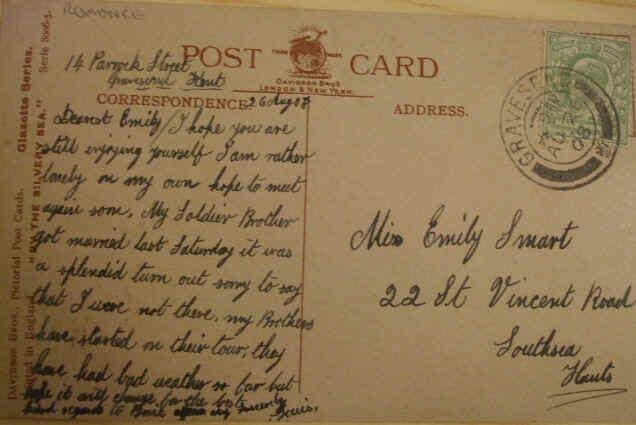 ROMANCE
POST CARD
TRADE MARK
DAVIDSON BROS
LONDON & NEW YORK.
CORRESPONDENCE
ADDRESS.
14 Parrock Street
Gravesend Kent
26 Aug 08
Dearest Emily, I hope you are
still enjoying yourself I am rather
lonely on my own hope to meet
again soon. My Soldier Brother
got married last Saturday it was
a splendid turn out sorry to say
that I were not there, my Brothers
have started on their tour, they
have had bad weather so far but
hope it will change for the best
kind regards to
sincerely
GRAVESEND
AU 26
08
Miss Emily Smart
22 St Vincent Road
Southsea
Hants
Glazette Series.
Serie 8006-4.
"BY THE SILVERY SEA."
DAVIDSON BROS., Pictorial Post Cards.
Printed in England